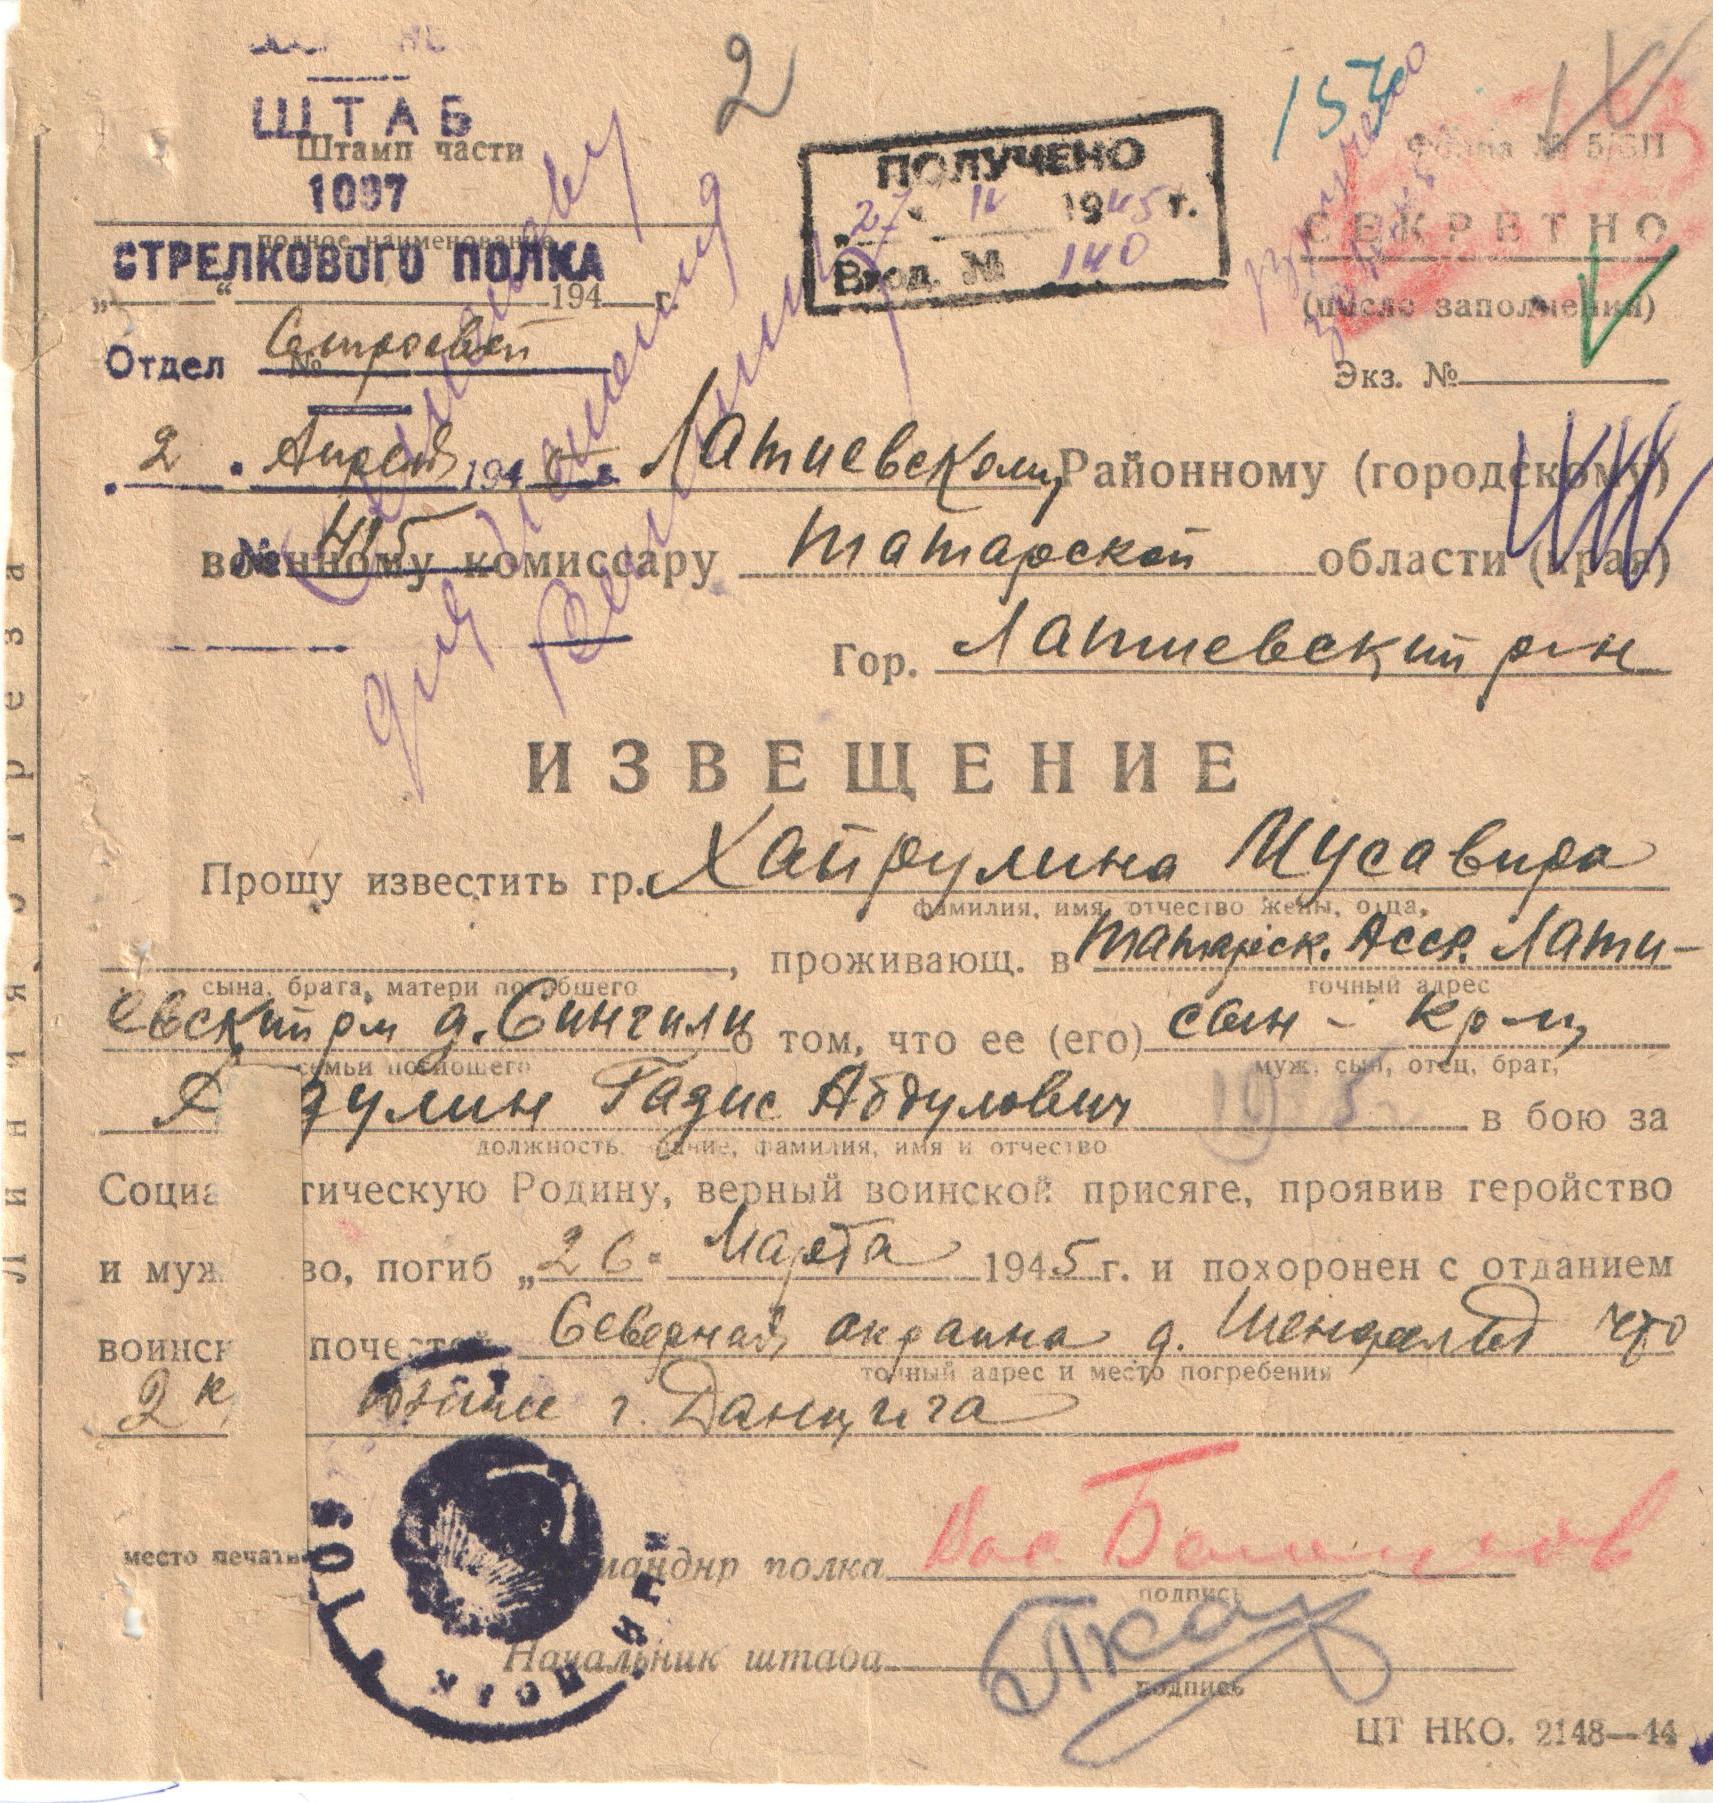 ШТАБ
Штамп части
1097
полное наименование
СТРЕЛКОВОГО ПОЛКА
„ “ 194 г.
Отдел Строевой
№
2 Апреля 1945 г.
№ 415
2
ПОЛУЧЕНО
„27“ IV 1945 г.
Вход. № 140
157
Форма № 5/БП
СЕКРЕТНО
(после заполнения)
Экз. №
для
Латиевскому Районному (городскому)
военному комиссару Татарской области (края)
Гор. Латиевский р-н
ИЗВЕЩЕНИЕ
Прошу известить гр. Хайрулина Мусавира
фамилия, имя, отчество жены, отца,
, проживающ. в Татарск. Асср. Лати-
сына, брата, матери погибшего
точный адрес
евский рн д. Сингили о том, что ее (его) сын - кр-ц
семьи погибшего
муж, сын, отец, брат,
дулин Гадис Абдулович 1925 в бою за
должность, звание, фамилия, имя и отчество
Социа тическую Родину, верный воинской присяге, проявив геройство
и муж во, погиб „26“ Марта 1945 г. и похоронен с отданием
воинск почестей Северная окраина д. что
точный адрес и место погребения
2 к г. Данцига
место печати
мандир полка
подпись
Начальник штаба
подпись
ЦТ НКО. 2148—44
Линия отреза